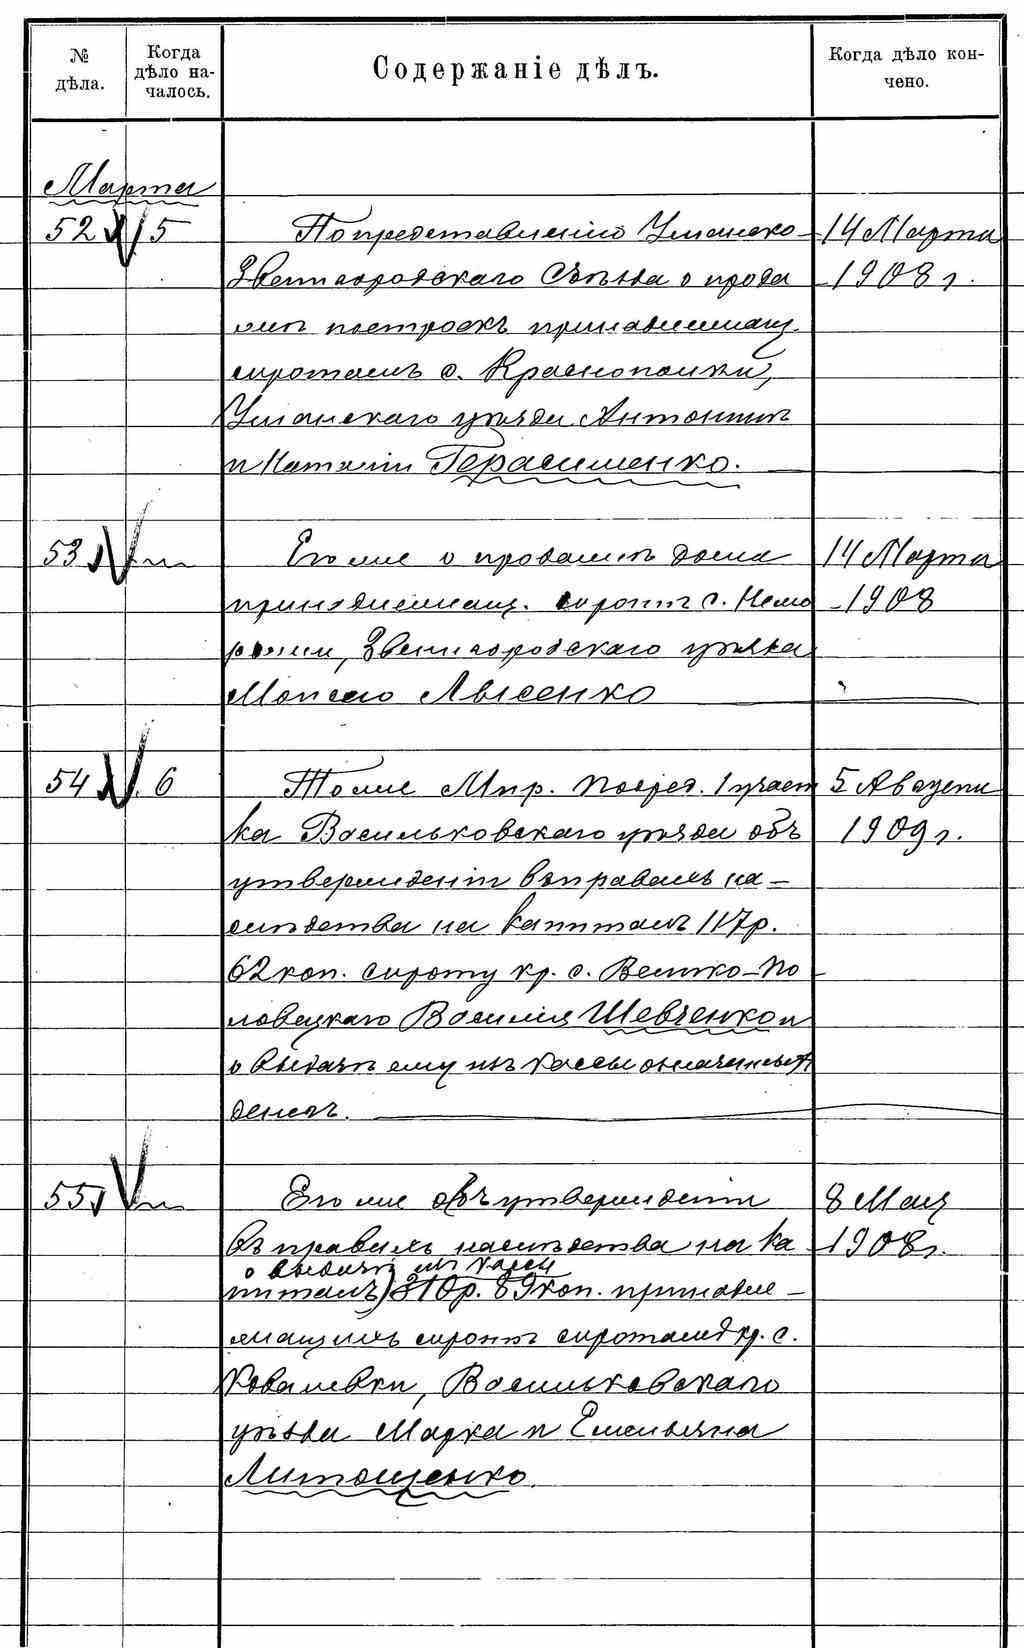 № дѣла.
Когда дѣло началось.
Содержаніе дѣлъ.
Когда дѣло кончено.
Марта
52 5 По представленію Уманско- 14 Марта
Звенигородскаго Съѣзда о прода 1908 г.
жѣ построекъ принадлежащ.
сиротамъ с. Краснополки,
Уманскаго уѣзда Антонинѣ
и Наталіи Герасименко.
53 " Его же о продажѣ дома 14 Марта
принадлежащ. сиротѣ с. Немо 1908
рожи, Звенигородскаго уѣзда
Моисею Лысенко
54 6 Тоже Мир. Посред. 1 участ 5 Августа
ка Васильковскаго уѣзда объ 1909 г.
утвержденіи въ правахъ на-
слѣдства на капиталъ 117 р.
62 коп. сироту кр. с. Велико-По
ловецкаго Василія Шевченко и
о выдачѣ ему изъ кассы означенныхъ
денегъ.
55 " Его же объ утвержденіи 8 Мая
въ правахъ наслѣдства на ка 1908 г.
о выдачѣ изъ кассы
питалъ) 310 р. 89 коп. принадле-
жащихъ сиротѣ сиротамъ кр. с.
Ковалевки, Васильковскаго
уѣзда Марка и Емельяна
Литощенко.